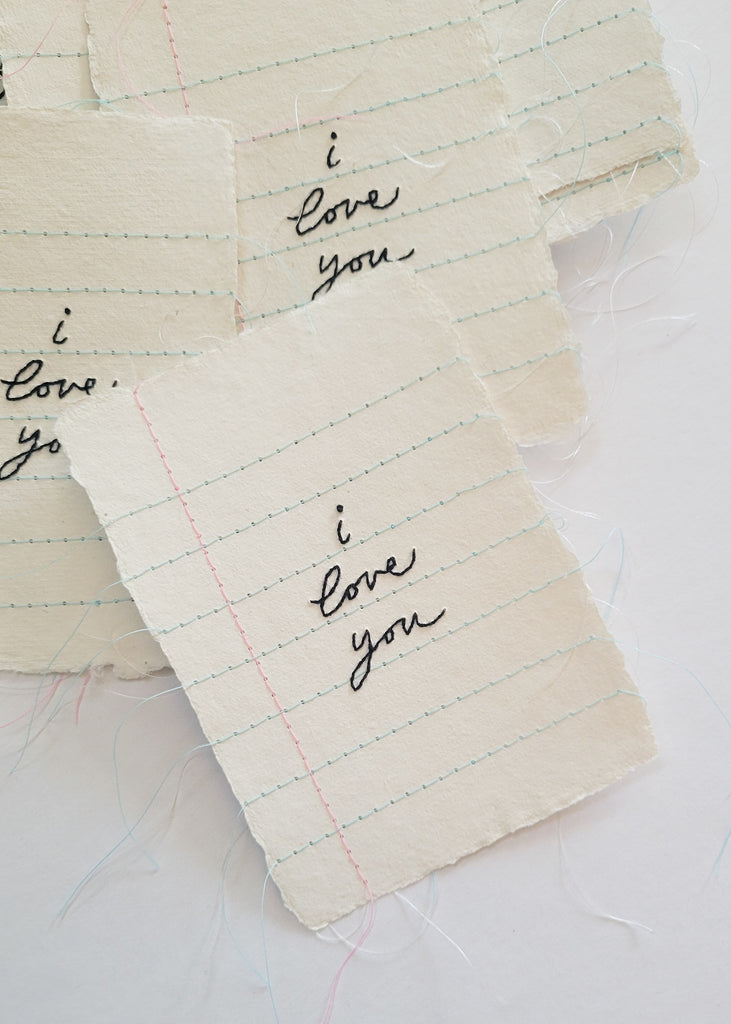 i
love
you
i
love
yo
i
love
you